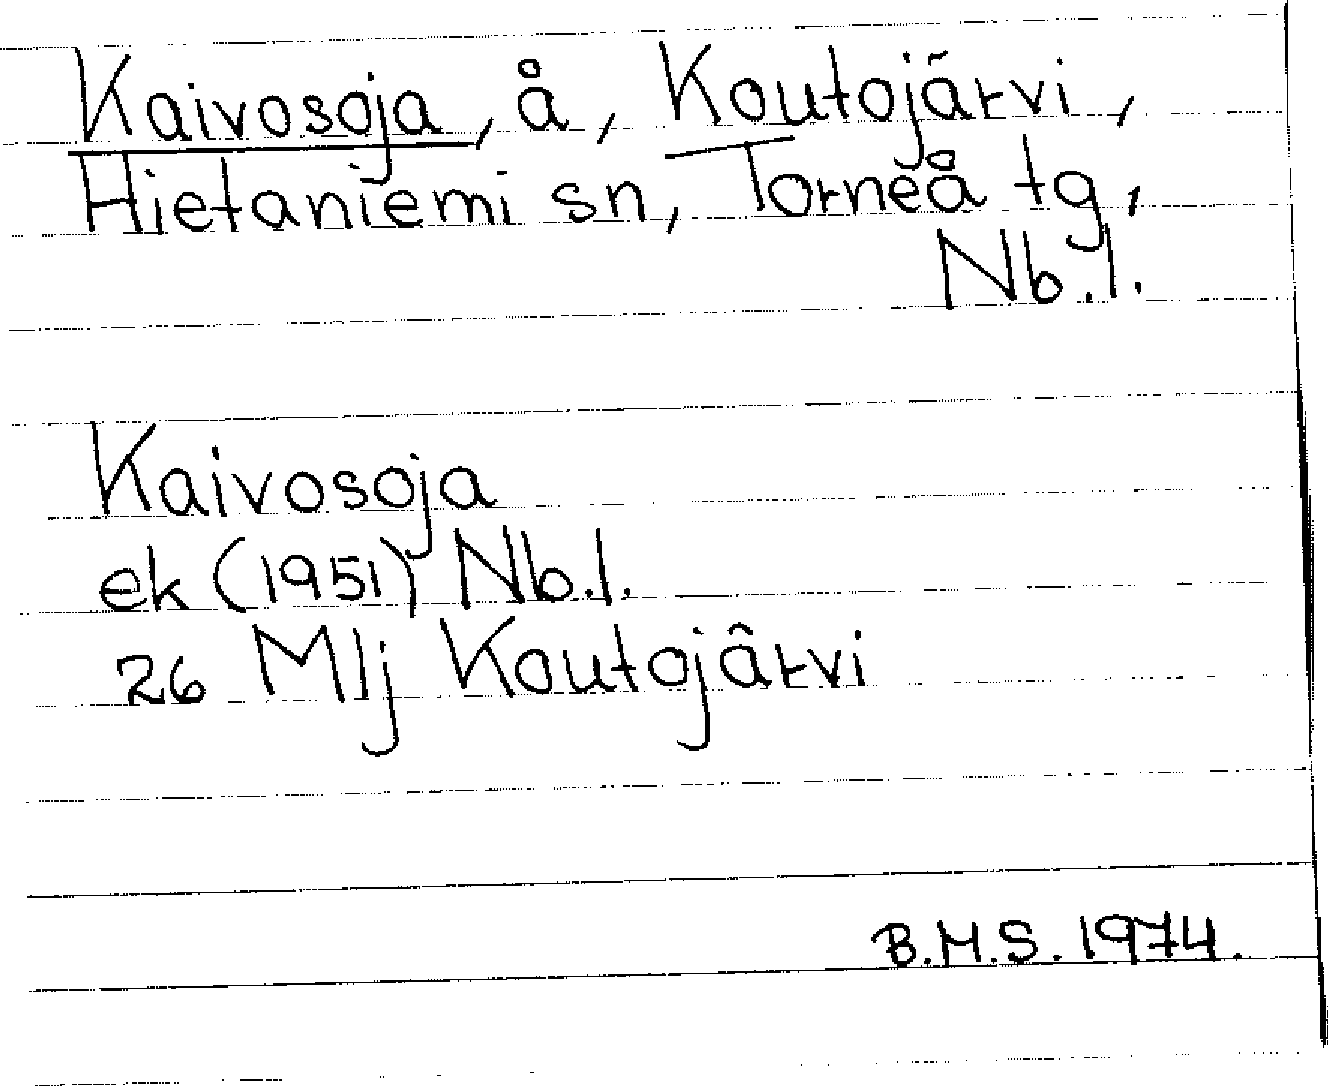 Kaivosoja, å, Koutojärvi,
Hietaniemi sn, Torneå tg,
Nb.l.
Kaivosoja
ek (1951) Nb.l.
26 Mlj Koutojärvi
B.M.S. 1974.